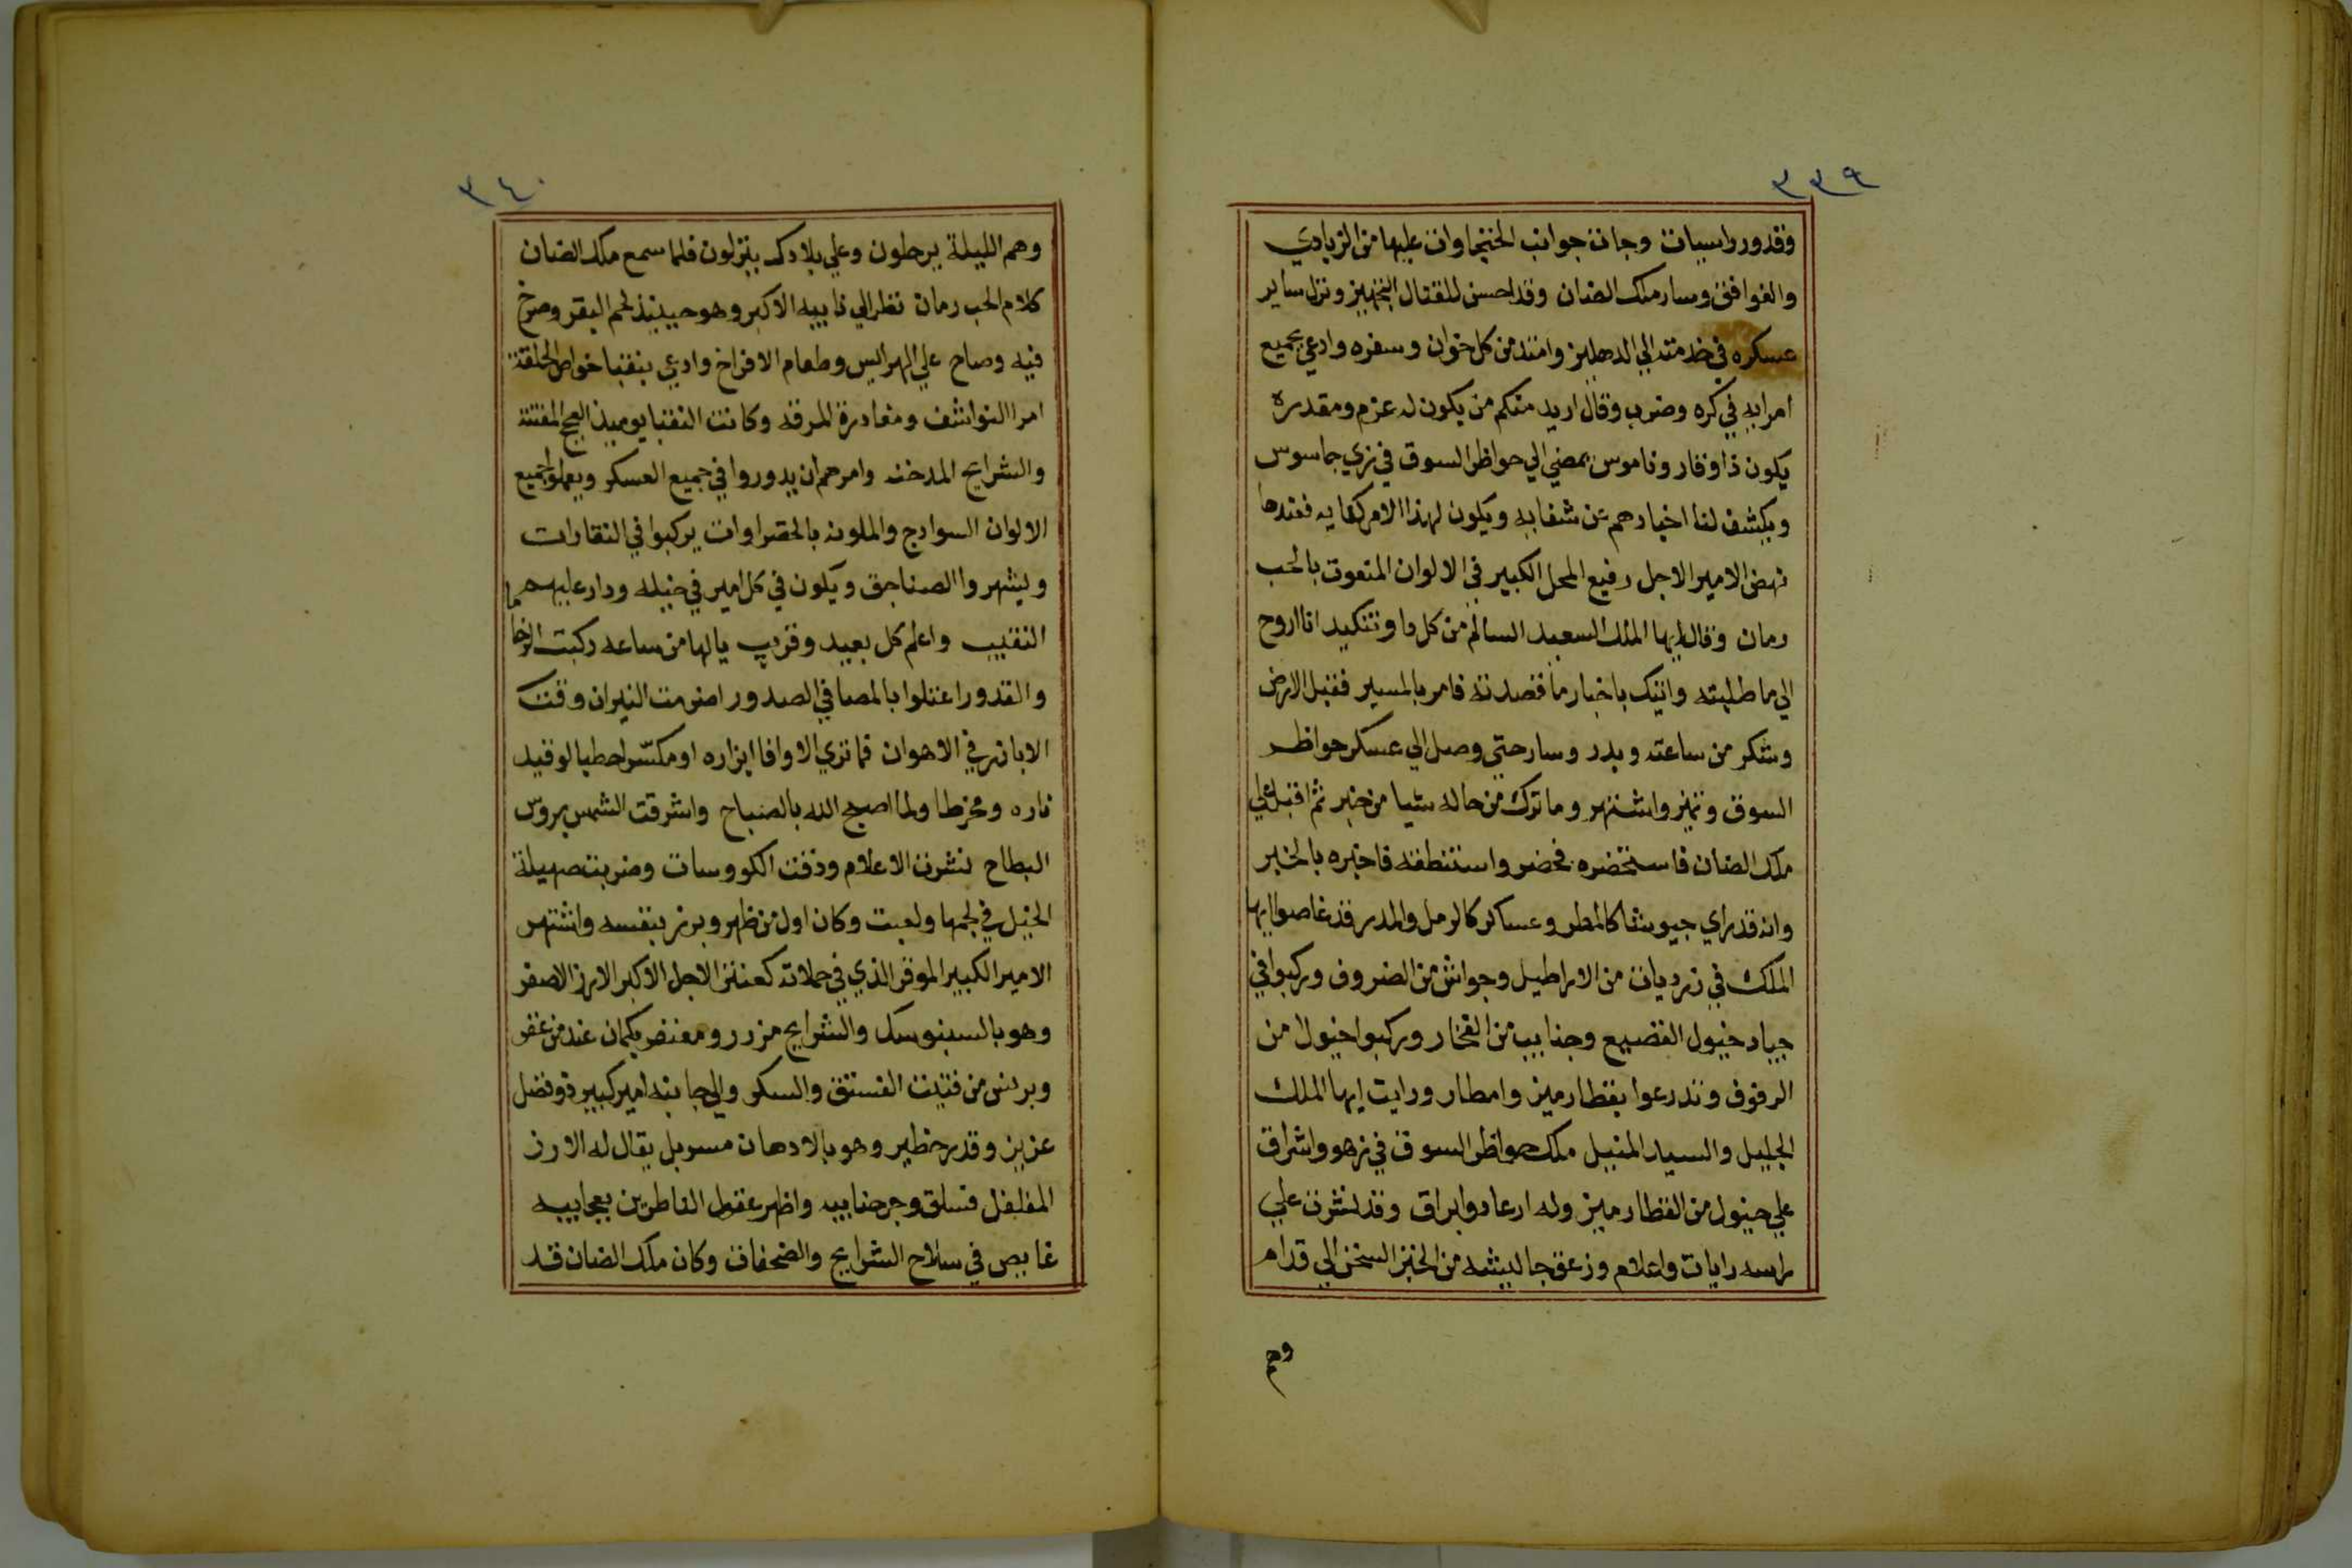 ٣٣٩
وقدور راسيات وجات جوانب الخنجاوات عليها من الزبادي
والغوافق وسار ملك الضان وقد احسن للقتال التجهيز ونزل ساير
عسكره في خدمته الي الدهليز وامتد من كل خوان وسفره وادعي بجميع
امرايه في كره وضرب وقال اريد منكم من يكون له عزم ومقدرة
يكون ذا وقار وناموس يمضي الي حواظر السوق في زي جاسوس
ويكشف لنا اخبارهم عن شفايه ويكون لهذا الامر كفايه فعندها
نهض الامير الاجل رفيع المحل الكبير في الالوان المنعوت بالحب
رمان وقال ايها الملك السعيد السالم من كل دا وتنكيد انا اروح
الي ما طلبته واتيك باخبار ما قصدته فامر بالمسير فقبل الارض
وشكر من ساعته وبدر وسار حتي وصل الي عسكر حواظر
السوق وتميز واشتهر وما ترك من حاله شيا من خبر ثم اقبل علي
ملك الضان فاستحضره فحضر واستنطقه فاخبره بالخبر
وانه قد راي جيوشا كالمطر وعساكر كالرمل والمدر قد غاصوا ايها
الملك في زرديات من الاراطيل وجواشن من الضروف وركبوا في
جياد خيول القضيع وجنايب من الفخار وركبوا خيولا من
الرفوف وتدرعوا بقطارميز وامطار ورايت ايها الملك
الجليل والسيد المنبيل ملك حواظر السوق في زهو واشراق
علي خيول من القطارميز وله ارعاد وابراق وقد نشرت علي
راسه رايات واعلام وزعق جاليشه من الخبز السخن الي قدام
وهم
٣٤٠
وهم الليلة يرحلون وعلي بلادك ينزلون فلما سمع ملك الضان
كلام الحب رمان نظر الي نايبه الاكبر وهو حينيذ لحم البقر وصرخ
فيه وصاح علي الهرايس وطعام الافراخ وادعي بنقبا خواص الحلقة
امرا النواشف ومغادرة المرقه وكانت النقبا يوميذ العجج المفتته
والشرايح المدخنه وامرهم ان يدوروا في جميع العسكر ويعلموا جميع
الالوان السوادج والملونه بالخضراوات يركبوا في النقارات
ويشهروا الصناجق ويكون في كل امير في خيله ودار عليهم
النقيب واعلم كل بعيد وقريب يالها من ساعه ركبت الرخا
والقدور اعتلوا بالمصافي الصدور اضرمت النيران وقت
الابازير في الاهوان فما تري الا وافا ابزاره او مكسر احطبا لوقيد
ناره ومخرطا ولما اصبح الله بالصباح واشرقت الشمس بروس
البطاح نشرت الاعلام ودقت الكووسات وضربت صهيلة
الخيل في لجمها ولعبت وكان اول من ظهر وبرز بنفسه واشتهر
الامير الكبير الموقر الذي في حملاته كعنتر الاجل الاكبر الارز الاصفر
وهو بالسنبوسك والشرايح مزرر ومعنضر بكمان عند من غفر
وبرنس من فتيت الفستق والسكر والي جانبه امير كبير ذو فضل
عزيز وقدر خظير وهو بالادهان مسوبل يقال له الارز
المفلفل فتسلق وجر جنايبه واظهر عقول الناظرين بعجايبه
غايص في سلاح الشرايح والضحفات وكان ملك الضان قد